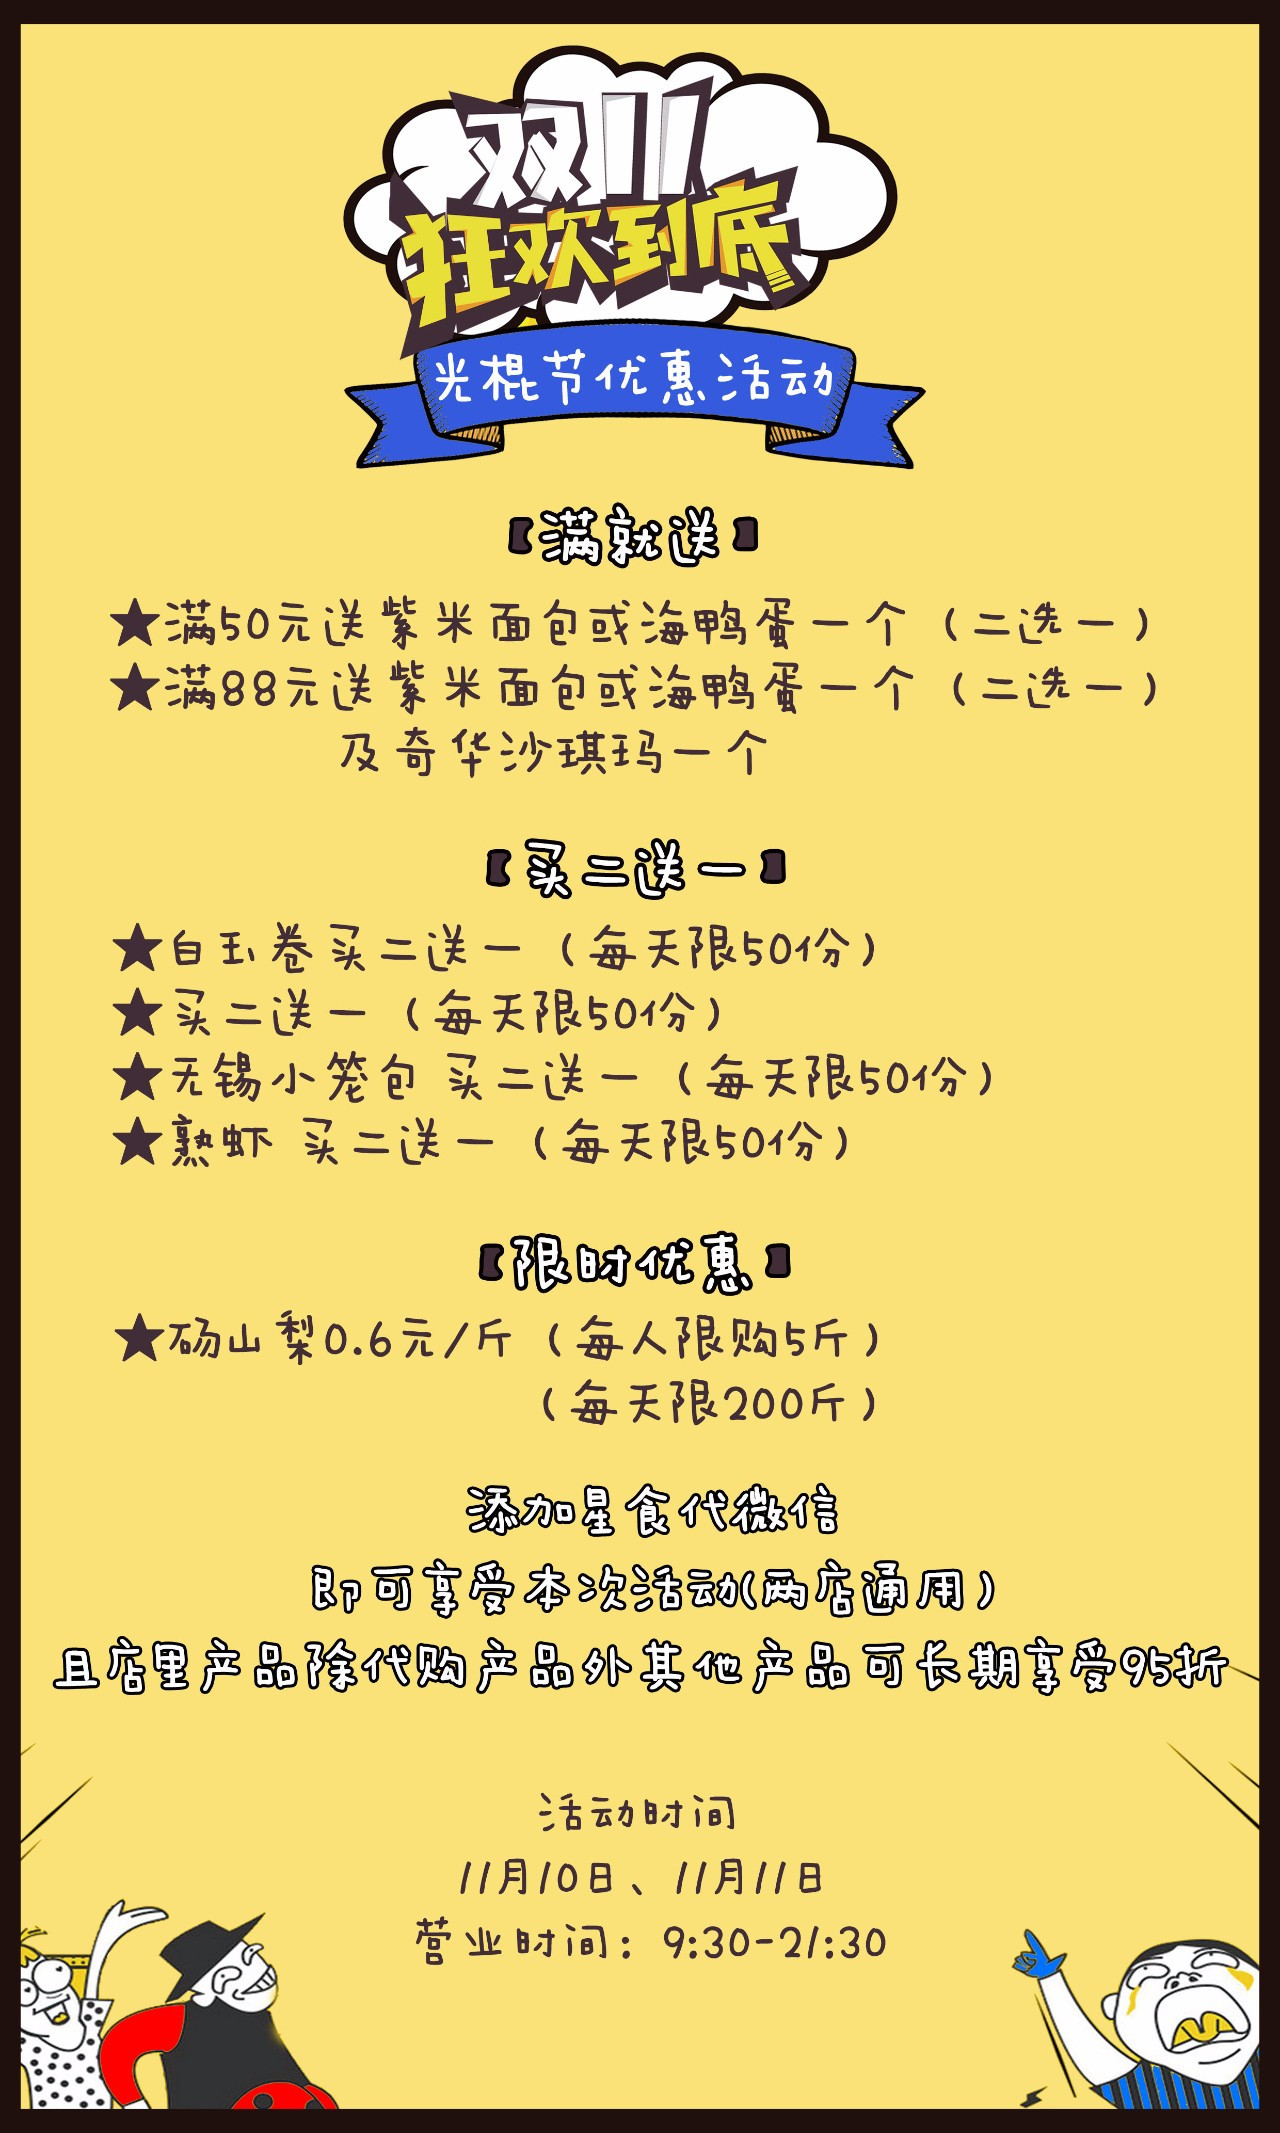 双11
狂欢到底
光棍节优惠活动
【满就送】
★满50元送紫米面包或海鸭蛋一个（二选一）
★满88元送紫米面包或海鸭蛋一个（二选一）
及奇华沙琪玛一个
【买二送一】
★白玉卷买二送一（每天限50份）
★买二送一（每天限50份）
★无锡小笼包 买二送一（每天限50份）
★熟虾 买二送一（每天限50份）
【限时优惠】
★砀山梨0.6元/斤（每人限购5斤）
（每天限200斤）
添加星食代微信
即可享受本次活动(两店通用)
且店里产品除代购产品外其他产品可长期享受95折
活动时间
11月10日、11月11日
营业时间：9:30-21:30